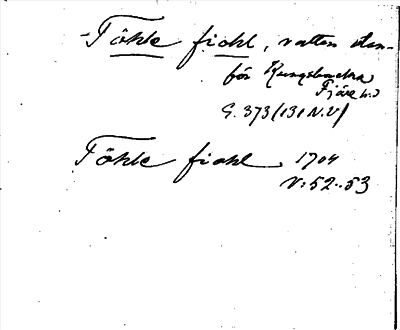 -Töhle fiohl, vatten utan-
för Kungsbacka
Fjäre h:d
G. 373 (131 N.V)
Töhle fiohl 1704
V: 52-53